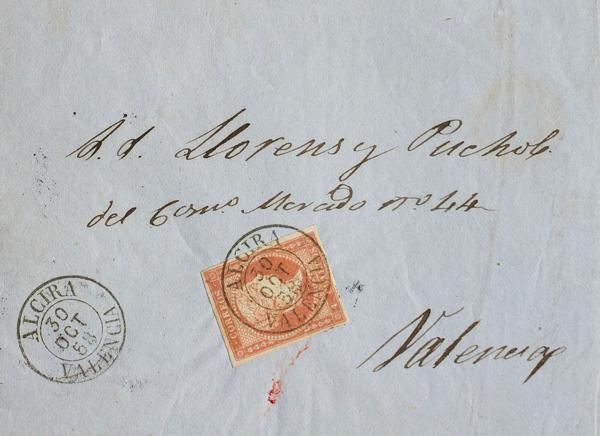 S. S. Llorens y Puchol.
del Com.º Mercado nº 44
Valencia
ALCIRA
30
OCT
58
VALENCIA
ALCIRA
30
OCT
58
VALENCIA
CORREOS